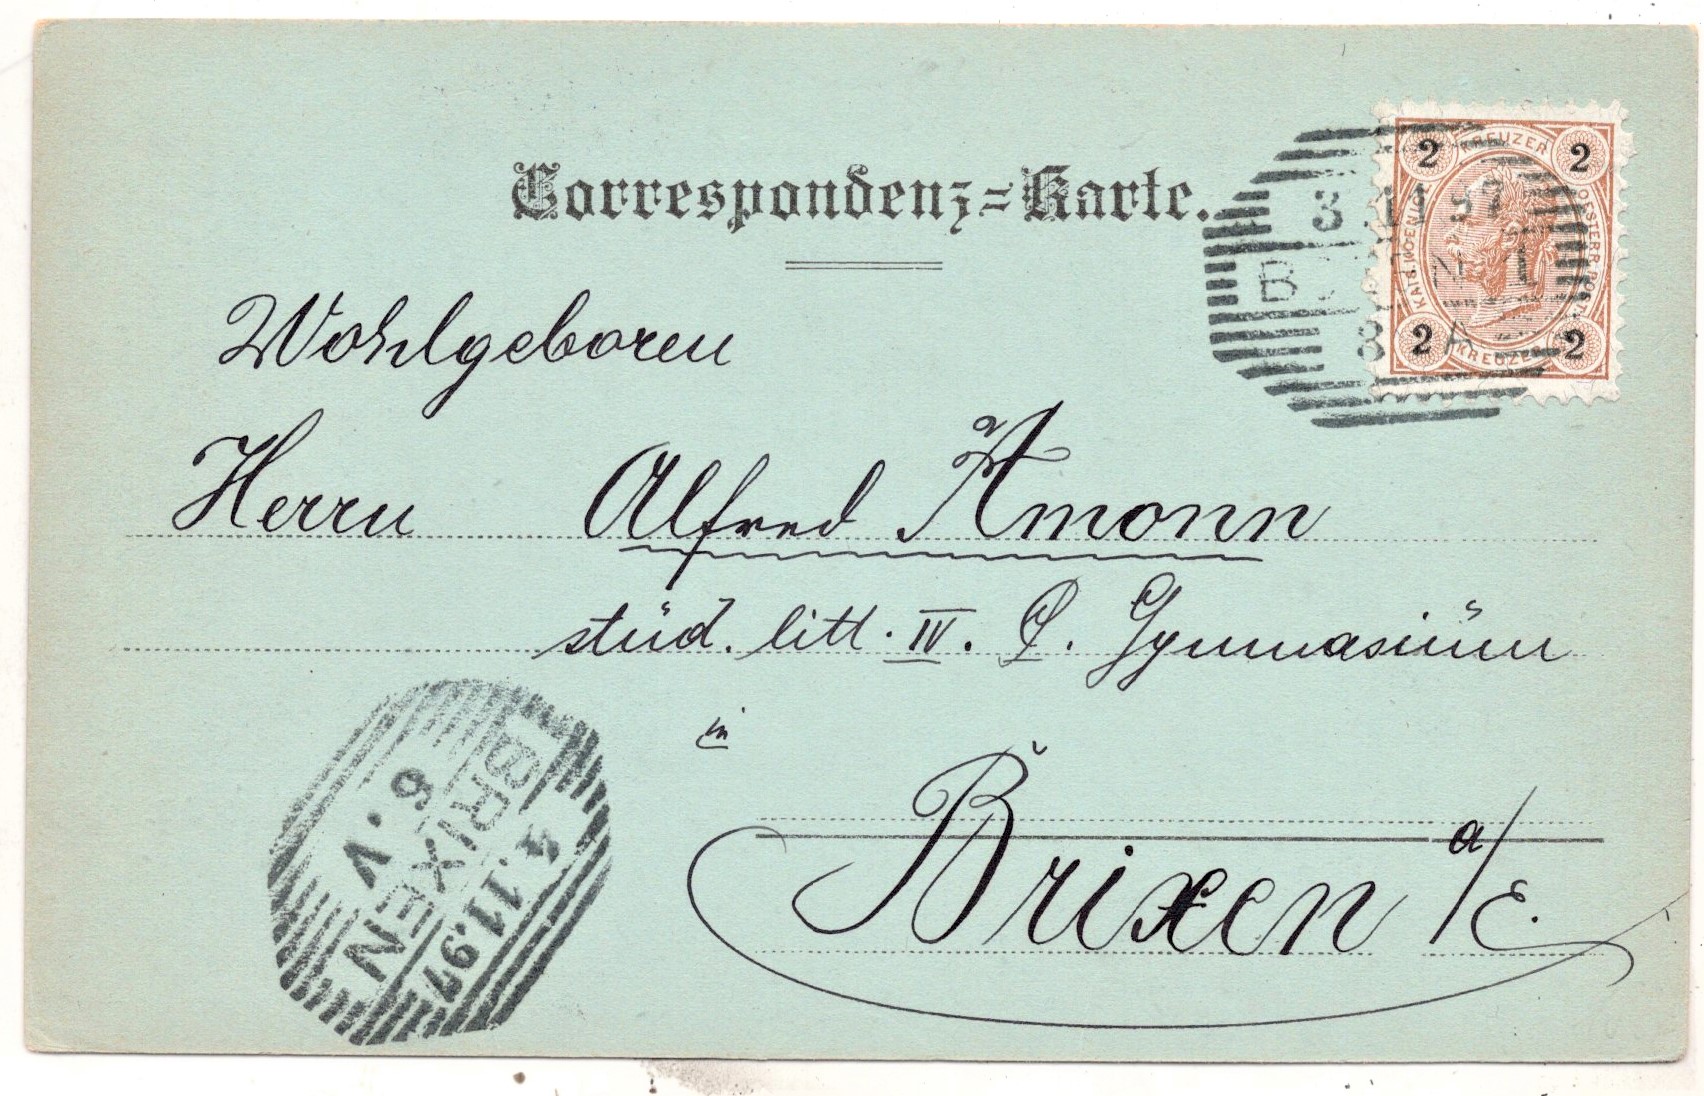 Correspondenz=Karte.
2 KREUZER 2
3 . 11 97
KAIS. KOENIGL. OESTERR. POST
8 A
2 KREUZER 2
Wohlgeboren
Herrn Alfred Amonn
stŭd. litt. IV. Gymnasiŭm
in
Brixen a/E.
6.V
BRIXEN
4.11.97